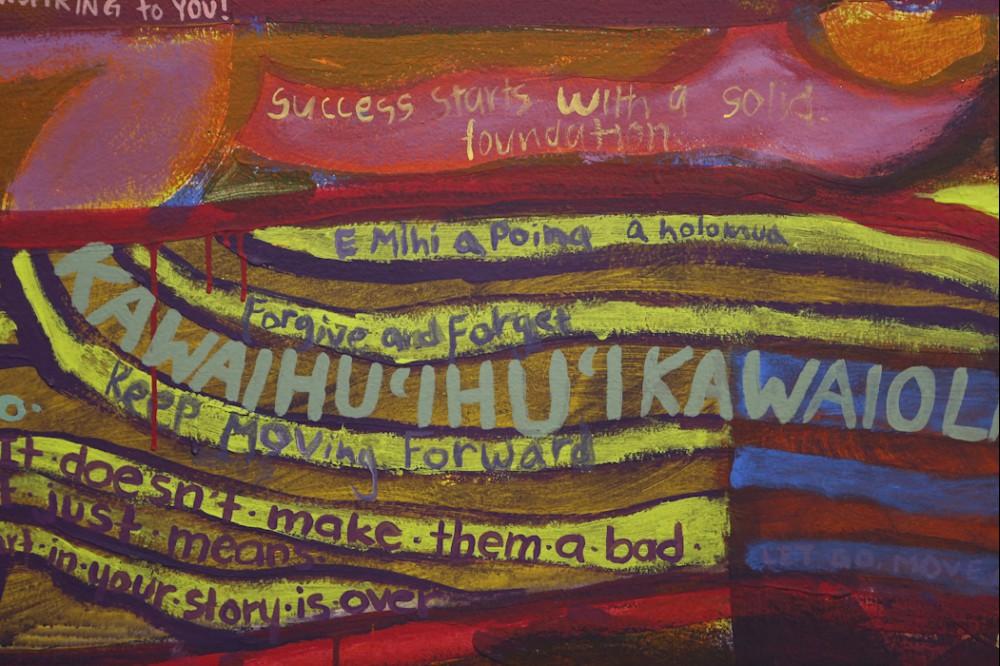 to YOU!
Success starts with a solid.
foundation
E Mihi a Poina a holomua
Forgive and Forget
KAWAIHUʻIHUʻIKAWAIOL
Keep Moving Forward
o.
It·doesn't·make·them·a·bad·
just·means
in·your·story·is·over
LET GO, MOVE